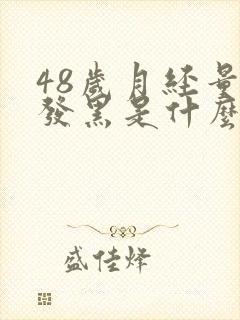 48歲月經量
發黑是什麼
盛佳烽